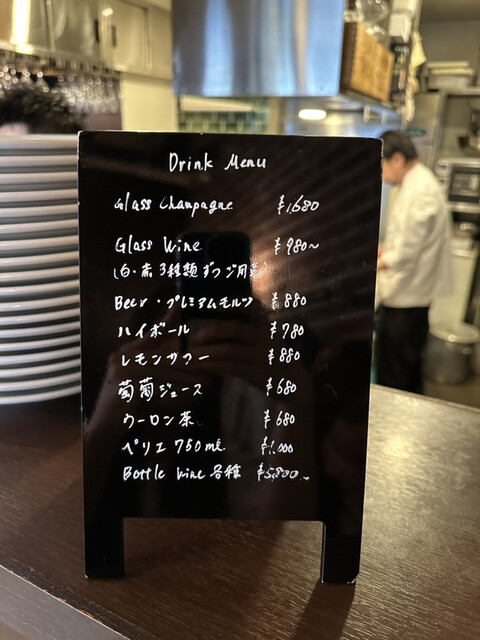 Drink Menu
Glass Champagne ¥1,680
Glass Wine ¥980~
(白・赤 3種類ずつご用意)
Beer・プレミアムモルツ ¥880
ハイボール ¥780
レモンサワー ¥880
葡萄ジュース ¥680
ウーロン茶 ¥680
ペリエ 750ml ¥1,000
Bottle Wine 各種 ¥5,800~